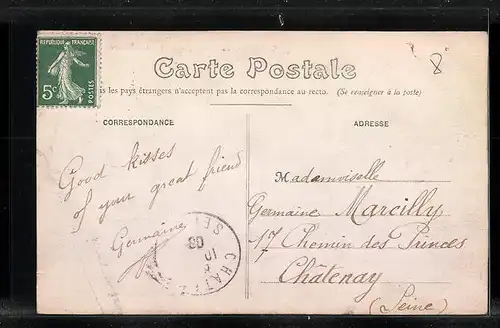 RÉPUBLIQUE FRANÇAISE
5c
POSTES
8
Carte Postale
les pays étrangers n'acceptent pas la correspondance au recto. (Se renseigner à la poste)
CORRESPONDANCE
ADRESSE
Good kisses
of your great friend
Germaine
Mademoiselle
Germaine Marcilly
17 Chemin des Princes
Châtenay
(Seine)
CHATE
10
08
SEI